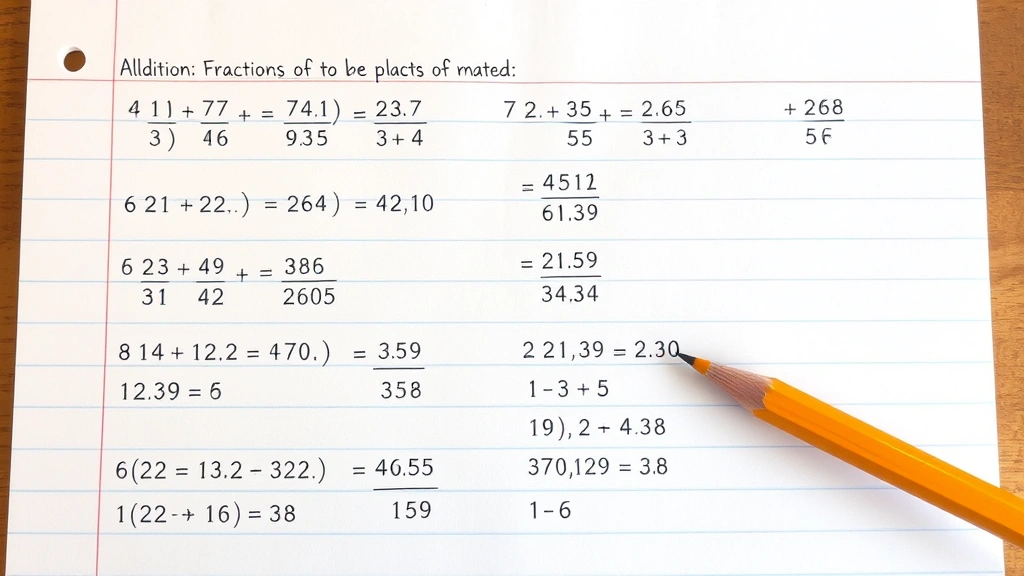 Alldition: Fractions of to be placts of mated:
4 11/3) + 77/46 + = 74.1)/9.35 = 23.7/3+4
7 2. + 35/55 + = 2.65/3+3
+ 268/56
6 21 + 22..) = 264) = 42,10
= 4512/61.39
6 23/31 + 49/42 + = 386/2605
= 21.59/34.34
8 14 + 12.2 = 470.) = 3.59/358
12.39 = 6
2 21,39 = 2.30
1-3 + 5
19), 2 + 4.38
6(22 = 13.2 - 322.) = 46.55/159
1(22-+ 16) = 38
370,129 = 3.8
1-6